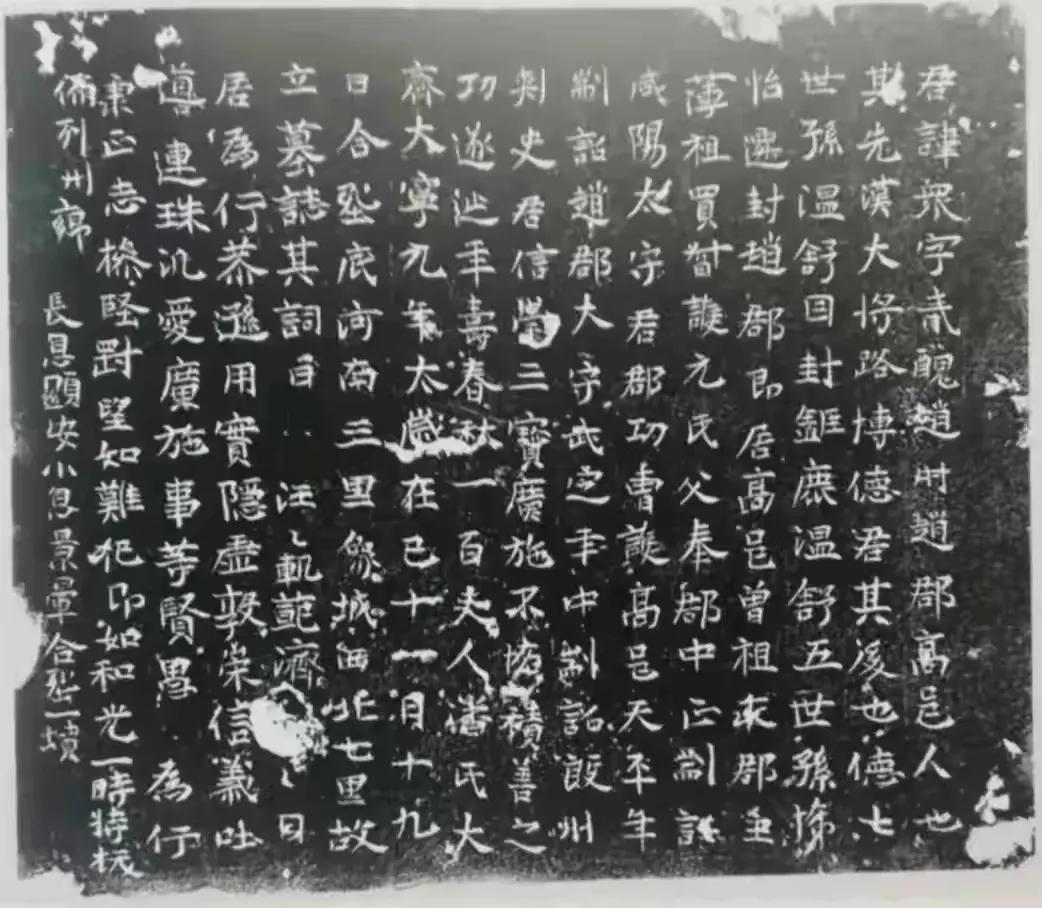 君諱眾字青醜趙州趙郡高邑人也
其先漢大將路博德君其後也德七
世孫溫舒因封鉅鹿溫舒五世孫
怡遷封趙郡即居高邑曾祖郡主
薄祖買督護元氏父奉郡中正制詔
咸陽太守君郡功曹護高邑天平年
制詔趙郡太守武定年中制詔殷州
刺史君信崇三寶廣施不積善之
功遂延年壽春秋一百夫人潘氏大
齊大寧九年太歲在巳十一月十九
日合塟底河南三里象城西北七里故
立墓誌其詞曰 汪〻軌範濟〻目
居為行恭遜用實隱虛敦崇信義吐
導連珠汎愛廣施事等賢愚 為行
秉正志操堅對望如難犯即如和光一時特秀
列州 長息顯安小息景暈合塟一墳